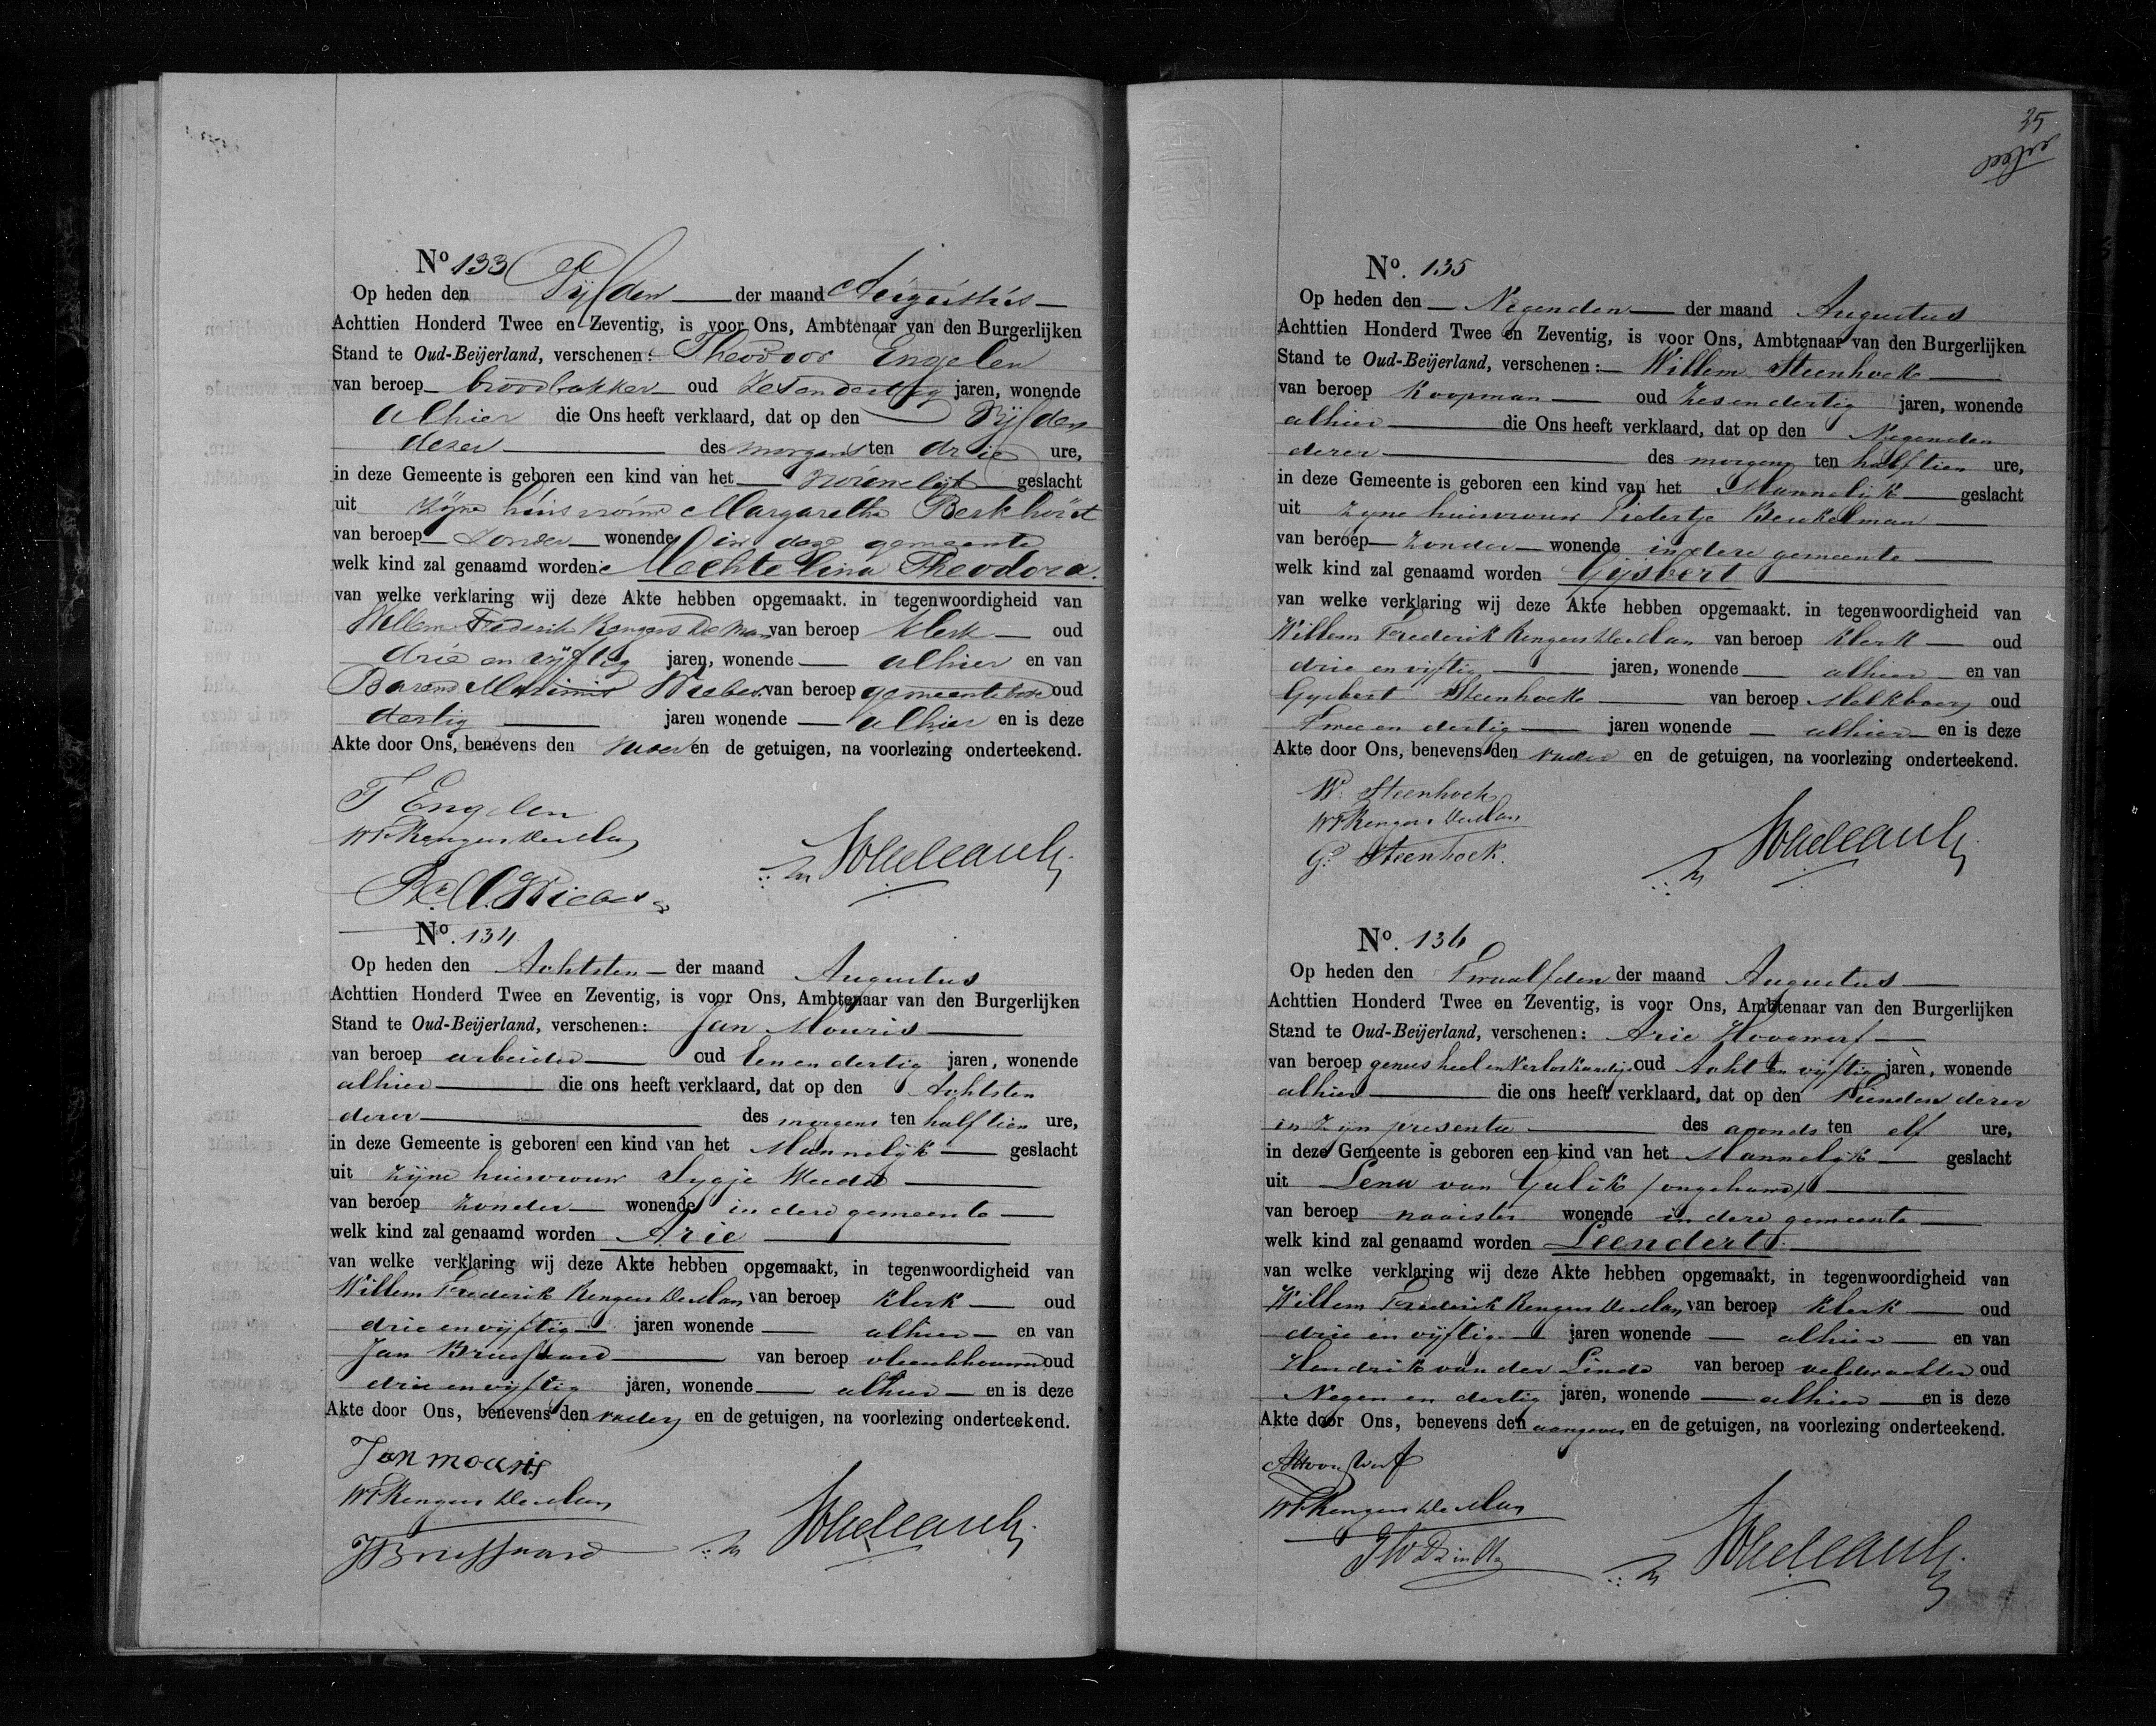 No 133
Op heden den Vyfden der maand Augustus
Achttien Honderd Twee en Zeventig, is voor Ons, Ambtenaar van den Burgerlijken
Stand te Oud-Beijerland, verschenen: Theodoor Engelen
van beroep broodbakker oud Zesendertig jaren, wonende
alhier die Ons heeft verklaard, dat op den Vijfden
dezer des morgens ten drie ure,
in deze Gemeente is geboren een kind van het Vrouwelijk geslacht
uit zijne huisvrouw Margaretha Berkhorst
van beroep zonder wonende in deze gemeente
welk kind zal genaamd worden: Mechtelina Theodora.
van welke verklaring wij deze Akte hebben opgemaakt. in tegenwoordigheid van
Willem Frederik Rengers van beroep Klerk oud
drie en vijftig jaren, wonende alhier en van
Barend Marinus Wiebes van beroep gemeentebode oud
dertig jaren wonende alhier en is deze
Akte door Ons, benevens den vader en de getuigen, na voorlezing onderteekend.
T Engelen
WFRengers
Wiebes
No. 134
Op heden den Achtsten der maand Augustus
Achttien Honderd Twee en Zeventig, is voor Ons, Ambtenaar van den Burgerlijken
Stand te Oud-Beijerland, verschenen: Jan Mouris
van beroep arbeider oud Eenendertig jaren, wonende
alhier die ons heeft verklaard, dat op den Achtsten
dezer des morgens ten half tien ure,
in deze Gemeente is geboren een kind van het Mannelijk geslacht
uit zijne huisvrouw Sygje Weeda
van beroep zonder wonende in deze gemeente
welk kind zal genaamd worden Arie
van welke verklaring wij deze Akte hebben opgemaakt, in tegenwoordigheid van
Willem Frederik Rengers van beroep Klerk oud
drie en vijftig jaren wonende alhier en van
Jan Brussaard van beroep vleeschhouwer oud
drie en vijftig jaren, wonende alhier en is deze
Akte door Ons, benevens den vader en de getuigen, na voorlezing onderteekend.
Jan mouris
WFRengers
JBrussaard
35
No. 135
Op heden den Negenden der maand Augustus
Achttien Honderd Twee en Zeventig, is voor Ons, Ambtenaar van den Burgerlijken
Stand te Oud-Beijerland, verschenen: Willem Steenhoek
van beroep Koopman oud Zesendertig jaren, wonende
alhier die Ons heeft verklaard, dat op den Negenden
dezer des morgens ten half tien ure,
in deze Gemeente is geboren een kind van het Mannelijk geslacht
uit zyne huisvrouw Pietertje Beukelman
van beroep zonder wonende in deze gemeente
welk kind zal genaamd worden Gysbert
van welke verklaring wij deze Akte hebben opgemaakt. in tegenwoordigheid van
Willem Frederik Rengers van beroep Klerk oud
drie en vijftig jaren, wonende alhier en van
Gysbert Steenhoek van beroep Melkboer oud
Twee en dertig jaren wonende alhier en is deze
Akte door Ons, benevens den vader en de getuigen, na voorlezing onderteekend.
W. Steenhoek
WFRengers
G. Steenhoek.
No. 136
Op heden den Twaalfden der maand Augustus
Achttien Honderd Twee en Zeventig, is voor Ons, Ambtenaar van den Burgerlijken
Stand te Oud-Beijerland, verschenen: Arie Hoogwerf
van beroep genees heel en Verloskundige oud Acht en vijftig jaren, wonende
alhier die ons heeft verklaard, dat op den Tienden dezer
in zijn presentie des avonds ten elf ure,
in deze Gemeente is geboren een kind van het Mannelijk geslacht
uit Lena van Gulik (ongehuwd)
van beroep naaister wonende in deze gemeente
welk kind zal genaamd worden Leendert
van welke verklaring wij deze Akte hebben opgemaakt, in tegenwoordigheid van
Willem Frederik Rengers van beroep Klerk oud
drie en vijftig jaren wonende alhier en van
Hendrik van der Linde van beroep veldwachter oud
Negen en dertig jaren, wonende alhier en is deze
Akte door Ons, benevens den aangever en de getuigen, na voorlezing onderteekend.
AHoogwerf
WFRengers